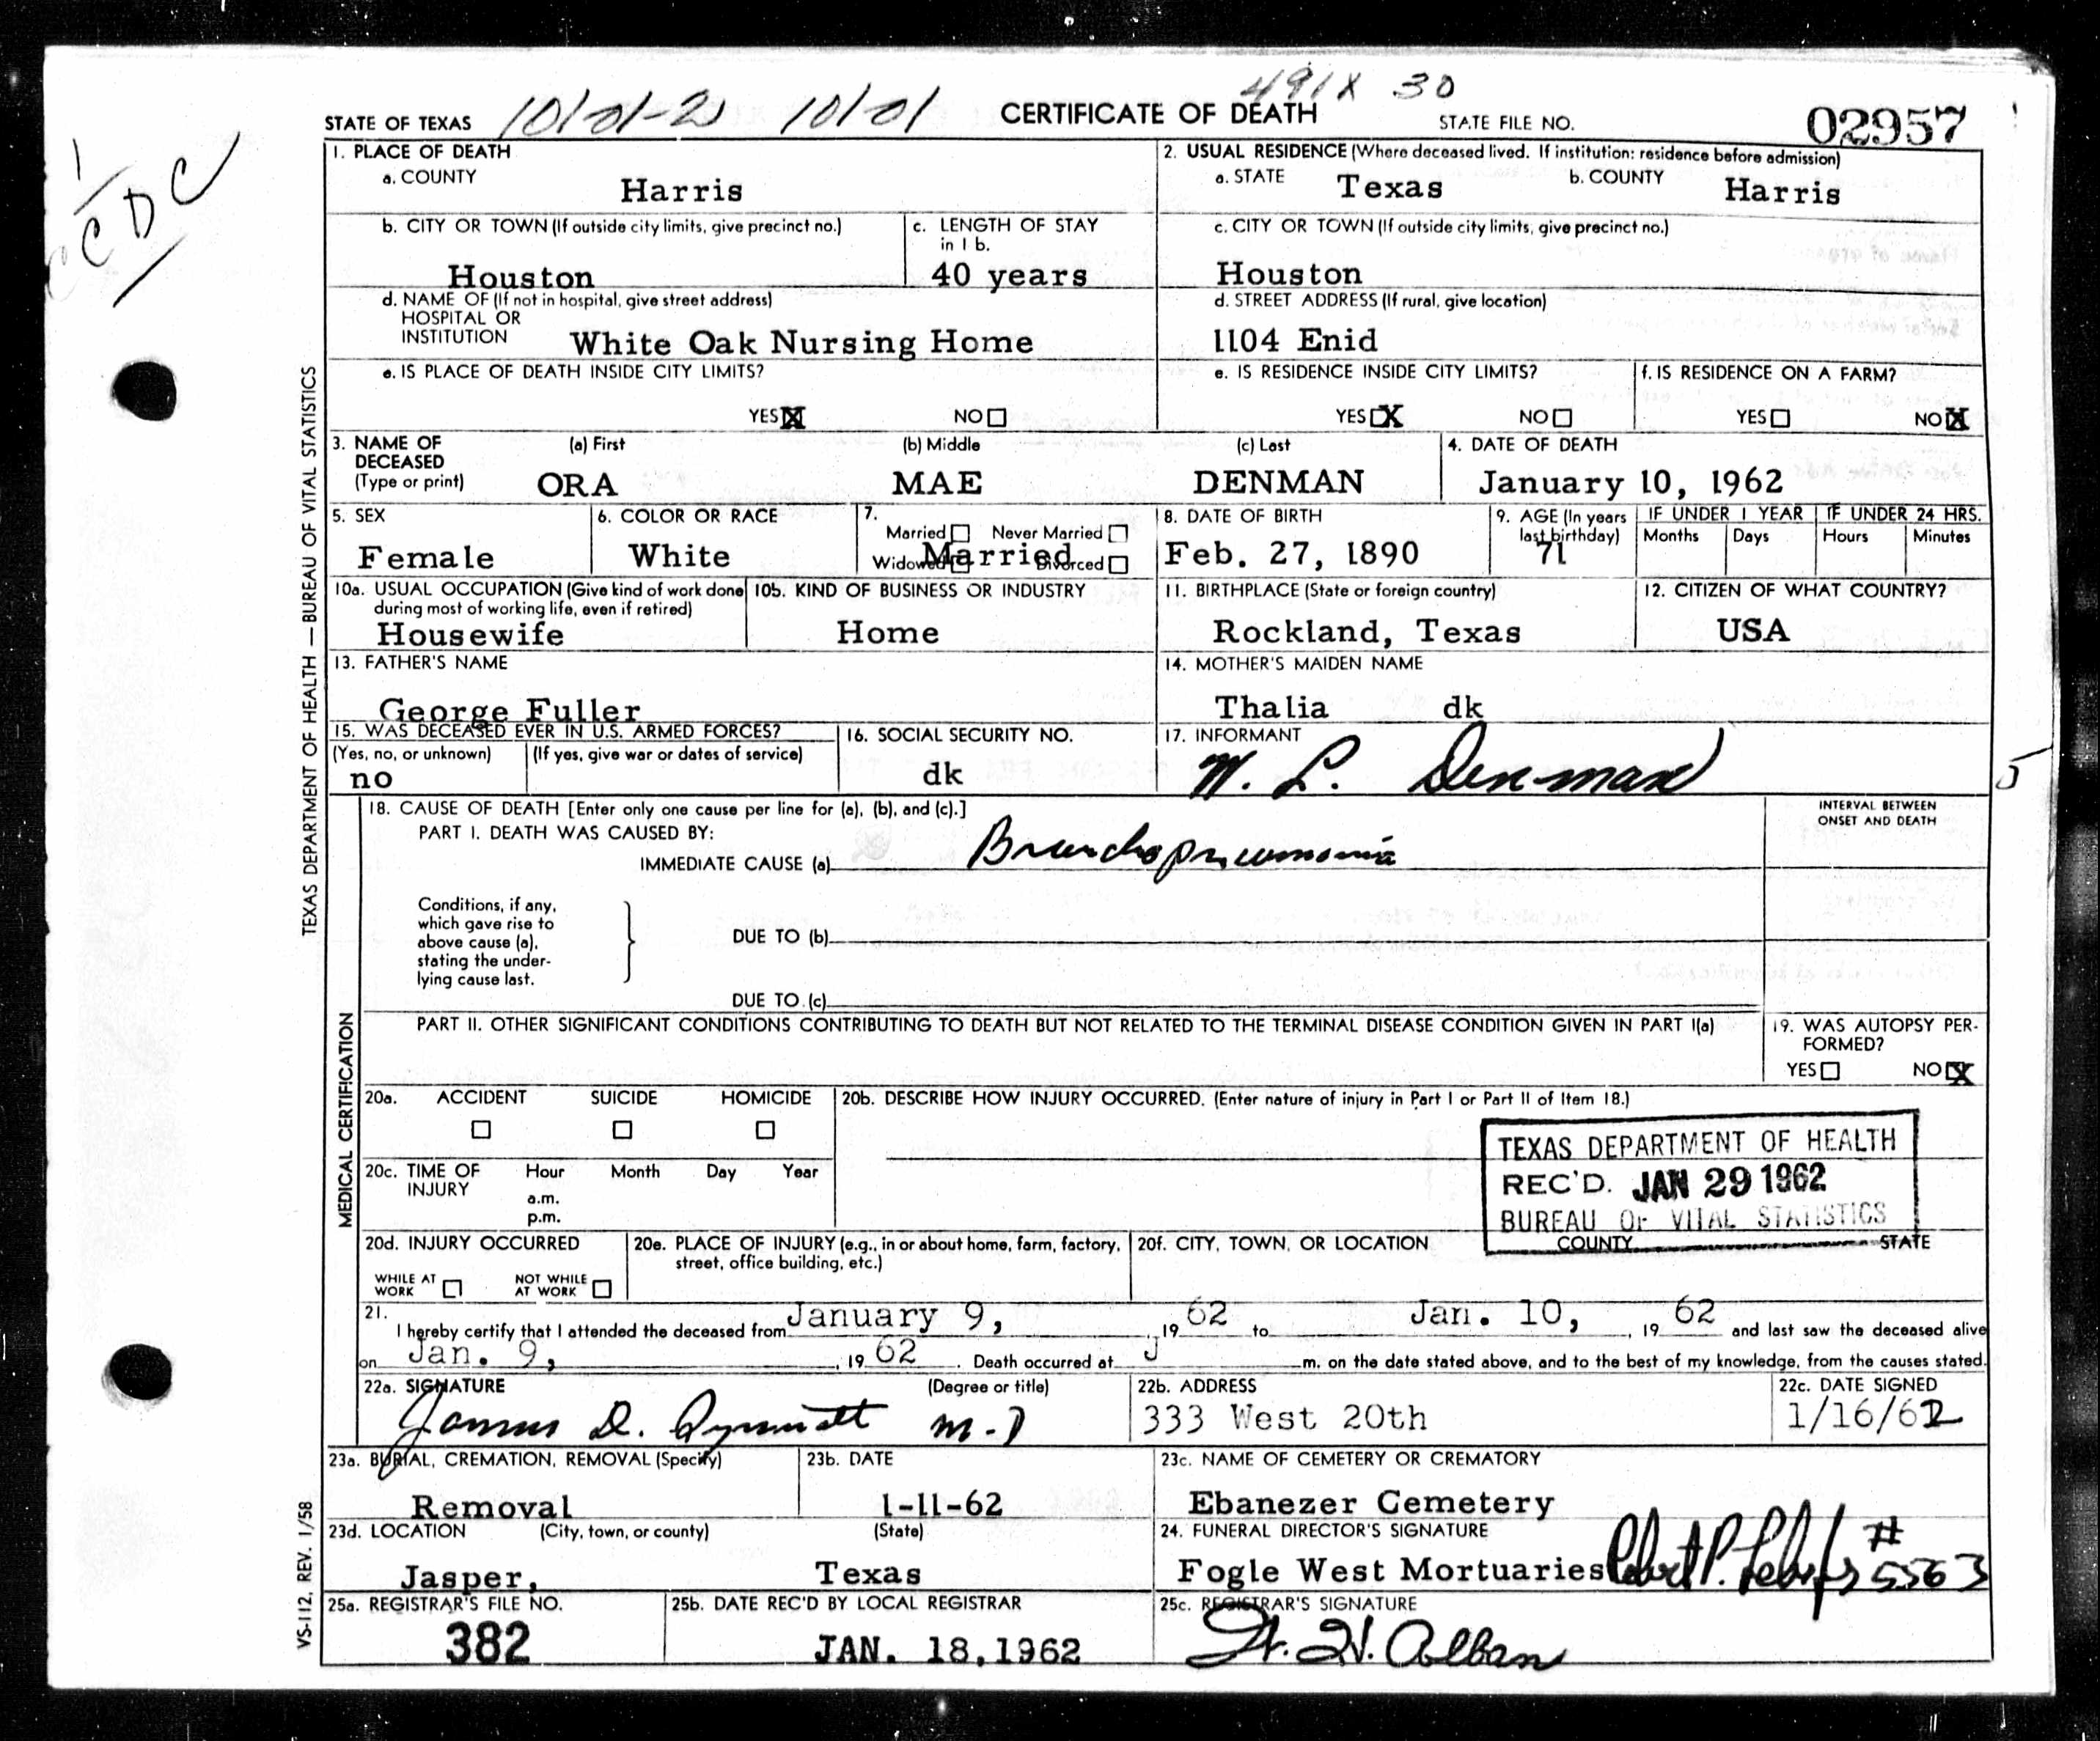 491X 30
STATE OF TEXAS 10/01-2 10/01 CERTIFICATE OF DEATH STATE FILE NO. 02957
CDC
1. PLACE OF DEATH
a. COUNTY Harris
2. USUAL RESIDENCE (Where deceased lived. If institution: residence before admission)
a. STATE Texas b. COUNTY Harris
b. CITY OR TOWN (If outside city limits, give precinct no.) Houston
c. LENGTH OF STAY in 1 b. 40 years
c. CITY OR TOWN (If outside city limits, give precinct no.) Houston
d. NAME OF (If not in hospital, give street address)
HOSPITAL OR
INSTITUTION White Oak Nursing Home
d. STREET ADDRESS (If rural, give location)
1104 Enid
e. IS PLACE OF DEATH INSIDE CITY LIMITS?
YES X NO
e. IS RESIDENCE INSIDE CITY LIMITS?
YES X NO
f. IS RESIDENCE ON A FARM?
YES NO X
3. NAME OF DECEASED (Type or print)
(a) First (b) Middle (c) Last
ORA MAE DENMAN
4. DATE OF DEATH
January 10, 1962
5. SEX
Female
6. COLOR OR RACE
White
7. Married Never Married
Widowed Divorced
Married
8. DATE OF BIRTH
Feb. 27, 1890
9. AGE (In years last birthday)
71
IF UNDER 1 YEAR
Months Days
IF UNDER 24 HRS.
Hours Minutes
10a. USUAL OCCUPATION (Give kind of work done during most of working life, even if retired)
Housewife
10b. KIND OF BUSINESS OR INDUSTRY
Home
11. BIRTHPLACE (State or foreign country)
Rockland, Texas
12. CITIZEN OF WHAT COUNTRY?
USA
13. FATHER'S NAME
George Fuller
14. MOTHER'S MAIDEN NAME
Thalia dk
15. WAS DECEASED EVER IN U.S. ARMED FORCES?
(Yes, no, or unknown) (If yes, give war or dates of service)
no
16. SOCIAL SECURITY NO.
dk
17. INFORMANT
W. L. Denman
5
18. CAUSE OF DEATH [Enter only one cause per line for (a), (b), and (c).]
INTERVAL BETWEEN ONSET AND DEATH
PART I. DEATH WAS CAUSED BY:
IMMEDIATE CAUSE (a) Bronchopneumonia
Conditions, if any,
which gave rise to
above cause (a),
stating the under-
lying cause last.
DUE TO (b)
DUE TO (c)
PART II. OTHER SIGNIFICANT CONDITIONS CONTRIBUTING TO DEATH BUT NOT RELATED TO THE TERMINAL DISEASE CONDITION GIVEN IN PART I(a)
19. WAS AUTOPSY PER-
FORMED?
YES NO X
20a. ACCIDENT SUICIDE HOMICIDE
20b. DESCRIBE HOW INJURY OCCURRED. (Enter nature of injury in Part I or Part II of Item 18.)
TEXAS DEPARTMENT OF HEALTH
REC'D. JAN 29 1962
BUREAU OF VITAL STATISTICS
20c. TIME OF INJURY
Hour Month Day Year
a.m.
p.m.
20d. INJURY OCCURRED
WHILE AT WORK NOT WHILE AT WORK
20e. PLACE OF INJURY (e.g., in or about home, farm, factory, street, office building, etc.)
20f. CITY, TOWN, OR LOCATION COUNTY STATE
21.
I hereby certify that I attended the deceased from January 9, , 19 62 to Jan. 10, , 19 62 and last saw the deceased alive
on Jan. 9, , 19 62 . Death occurred at m. on the date stated above, and to the best of my knowledge, from the causes stated.
22a. SIGNATURE (Degree or title)
James D. M.D
22b. ADDRESS
333 West 20th
22c. DATE SIGNED
1/16/62
23a. BURIAL, CREMATION, REMOVAL (Specify)
Removal
23b. DATE
1-11-62
23c. NAME OF CEMETERY OR CREMATORY
Ebanezer Cemetery
23d. LOCATION (City, town, or county) (State)
Jasper, Texas
24. FUNERAL DIRECTOR'S SIGNATURE
Fogle West Mortuaries Robert P. # 5563
25a. REGISTRAR'S FILE NO.
382
25b. DATE REC'D BY LOCAL REGISTRAR
JAN. 18, 1962
25c. REGISTRAR'S SIGNATURE
W. H. Alban
TEXAS DEPARTMENT OF HEALTH — BUREAU OF VITAL STATISTICS
MEDICAL CERTIFICATION
VS-112, REV. 1/58